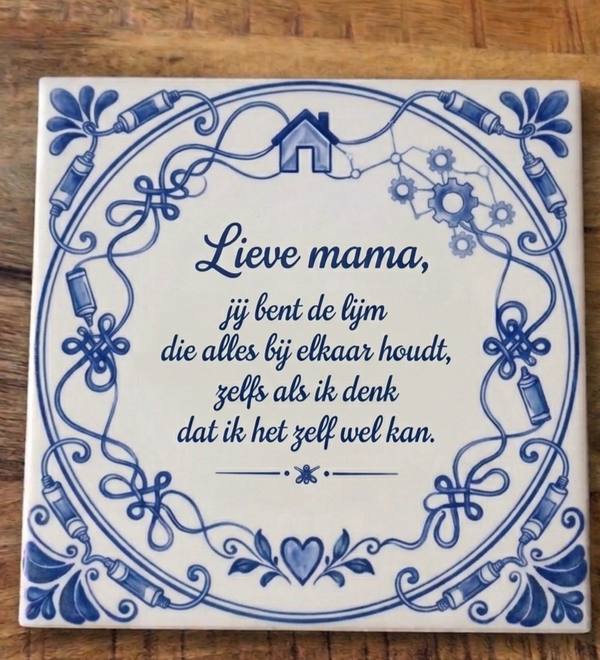 Lieve mama,
jij bent de lijm
die alles bij elkaar houdt,
zelfs als ik denk
dat ik het zelf wel kan.